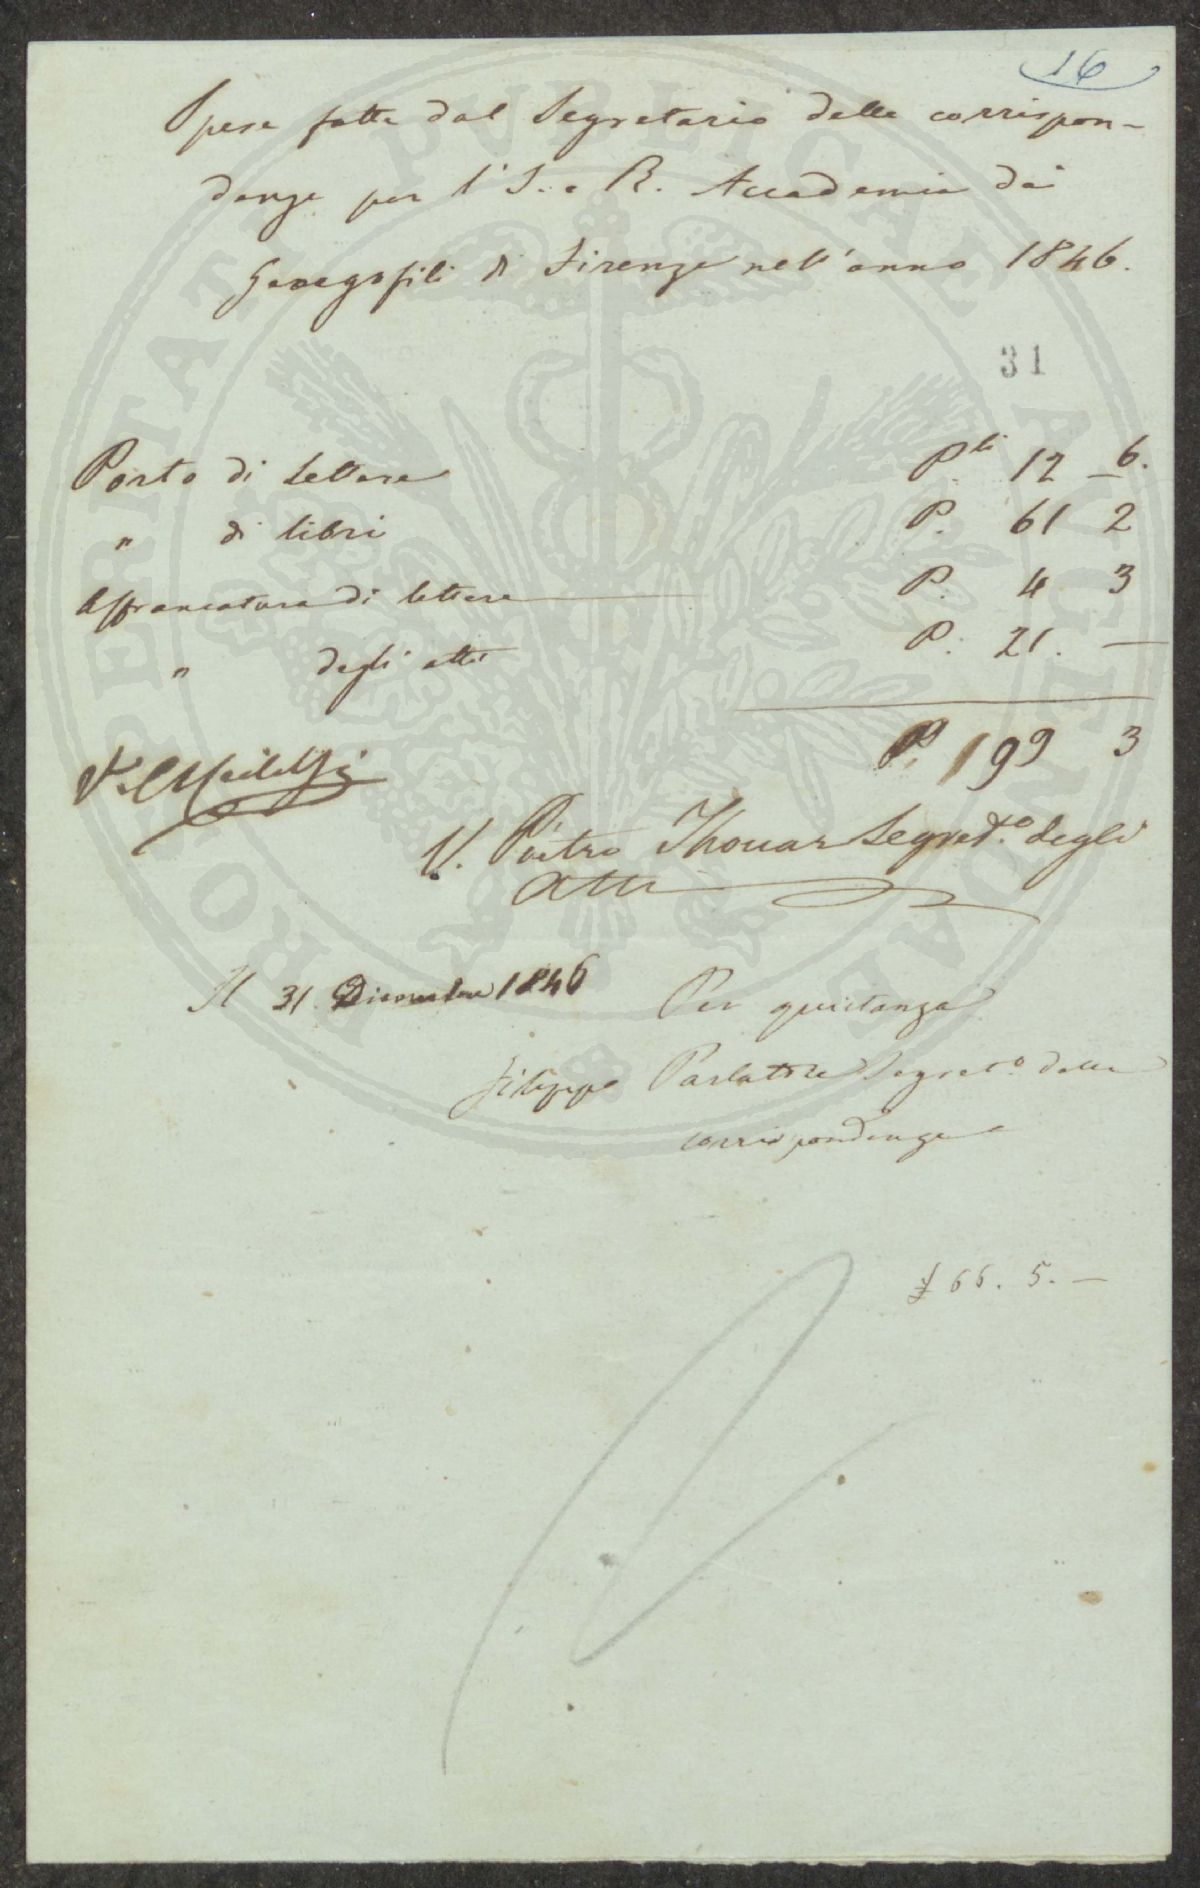 16
Spese fatte dal Segretario delle corrispon-
denze per l'I. e R. Accademia dei
Georgofili di Firenze nell'anno 1846.
31
Porto di lettere P.li 12 6.
" di libri P. 61 2
Affrancatura di lettere P. 4 3
" degli atti P. 21. —
P. 199 3
V. Pietro Thouar Segret.o degli
Atti
Il 31. Dicembre 1846 Per quietanza
Filippo Parlatore Segret.o delle
corrispondenze
£ 66. 5. —
PUBLICAE AUCEMDAE PROSPERITATI